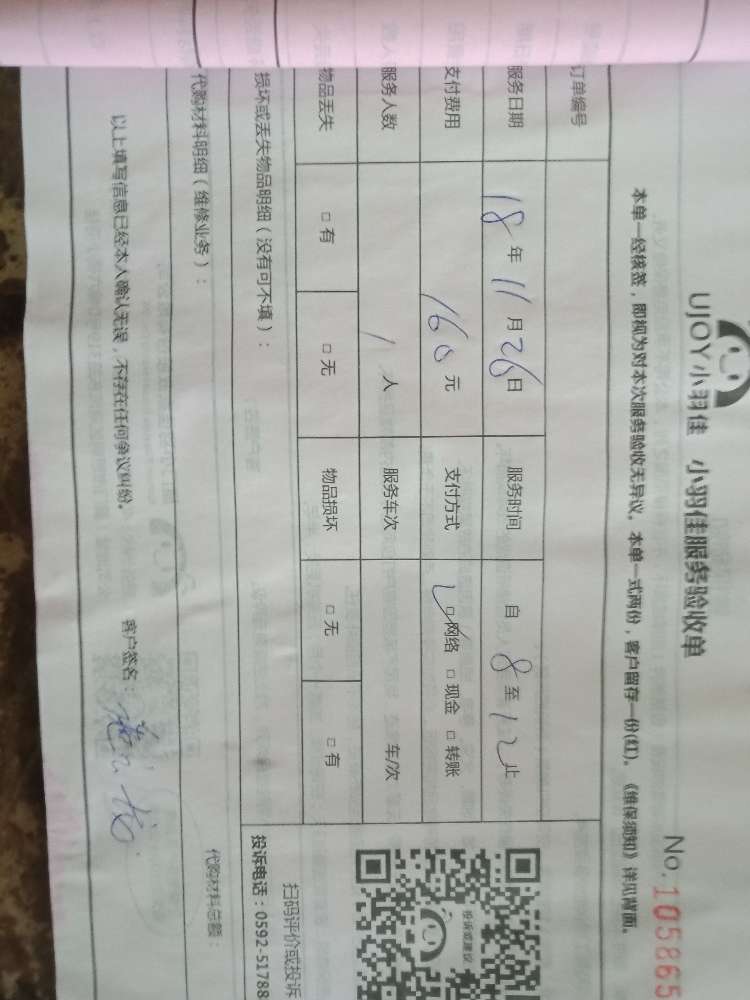 UJOY小羽佳 小羽佳服务验收单
No. 105865
本单一经核签，即视为对本次服务验收无异议。本单一式两份，客户留存一份(红)。《维保须知》详见背面。
订单编号
服务日期 18 年 11 月 26 日 服务时间 自 8 至 12 止
支付费用 160 元 支付方式 □网络 □现金 □转账
服务人数 1 人 服务车次 车/次
物品丢失 □有 □无 物品损坏 □无 □有
投诉或建议
扫码评价或投诉
投诉电话：0592-51788
损坏或丢失物品明细（没有可不填）：
代购材料明细（维修业务）： 代购材料总额：
以上填写信息已经本人确认无误，不存在任何争议纠纷。 客户签名：